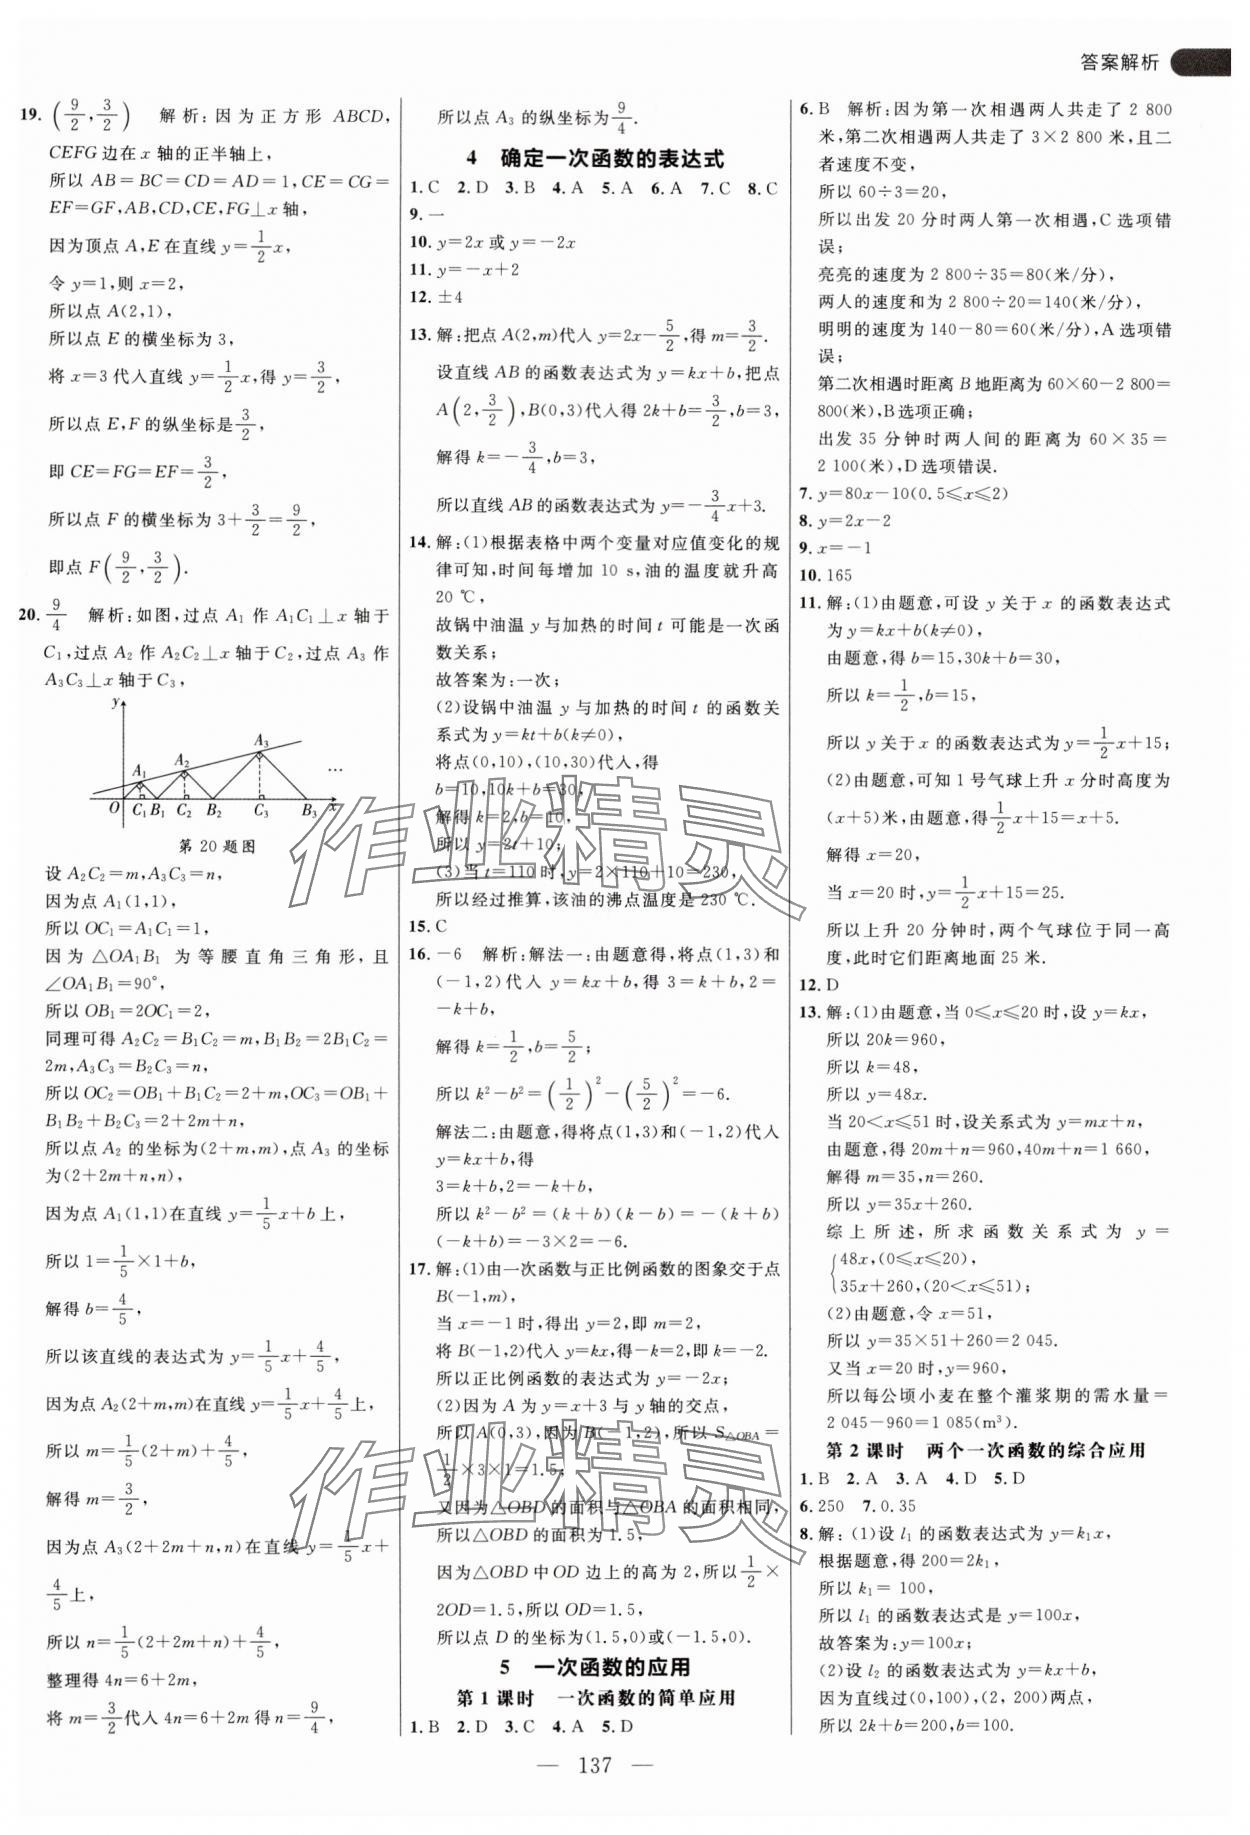 答案解析
19. (9/2, 3/2)  解析:因为正方形 ABCD,
CEFG 边在 x 轴的正半轴上,
所以 AB=BC=CD=AD=1,CE=CG=
EF=GF,AB,CD,CE,FG⊥x 轴,
因为顶点 A,E 在直线 y=1/2x,
令 y=1,则 x=2,
所以点 A(2,1),
所以点 E 的横坐标为 3,
将 x=3 代入直线 y=1/2x,得 y=3/2,
所以点 E,F 的纵坐标是3/2,
即 CE=FG=EF=3/2,
所以点 F 的横坐标为 3+3/2=9/2,
即点 F(9/2, 3/2).
20. 9/4  解析:如图,过点 A₁ 作 A₁C₁⊥x 轴于
C₁,过点 A₂ 作 A₂C₂⊥x 轴于 C₂,过点 A₃ 作
A₃C₃⊥x 轴于 C₃,
y
A₁ A₂ A₃ …
O C₁ B₁ C₂ B₂ C₃ B₃ x
第 20 题图
设 A₂C₂=m,A₃C₃=n,
因为点 A₁(1,1),
所以 OC₁=A₁C₁=1,
因为△OA₁B₁ 为等腰直角三角形,且
∠OA₁B₁=90°,
所以 OB₁=2OC₁=2,
同理可得 A₂C₂=B₁C₂=m,B₁B₂=2B₁C₂=
2m,A₃C₃=B₂C₃=n,
所以 OC₂=OB₁+B₁C₂=2+m,OC₃=OB₁+
B₁B₂+B₂C₃=2+2m+n,
所以点 A₂ 的坐标为(2+m,m),点 A₃ 的坐标
为(2+2m+n,n),
因为点 A₁(1,1)在直线 y=1/5x+b 上,
所以 1=1/5×1+b,
解得 b=4/5,
所以该直线的表达式为 y=1/5x+4/5,
因为点 A₂(2+m,m)在直线 y=1/5x+4/5上,
所以 m=1/5(2+m)+4/5,
解得 m=3/2,
因为点 A₃(2+2m+n,n)在直线 y=1/5x+
4/5上,
所以 n=1/5(2+2m+n)+4/5,
整理得 4n=6+2m,
将 m=3/2代入 4n=6+2m 得 n=9/4,
所以点 A₃ 的纵坐标为9/4.
4 确定一次函数的表达式
1. C 2. D 3. B 4. A 5. A 6. A 7. C 8. C
9. 一
10. y=2x 或 y=-2x
11. y=-x+2
12. ±4
13. 解:把点 A(2,m)代入 y=2x-5/2,得 m=3/2.
设直线 AB 的函数表达式为 y=kx+b,把点
A(2, 3/2),B(0,3)代入得 2k+b=3/2,b=3,
解得 k=-3/4,b=3,
所以直线 AB 的函数表达式为 y=-3/4x+3.
14. 解:(1)根据表格中两个变量对应值变化的规
律可知,时间每增加 10 s,油的温度就升高
20 ℃,
故锅中油温 y 与加热的时间 t 可能是一次函
数关系;
故答案为:一次;
(2)设锅中油温 y 与加热的时间 t 的函数关
系式为 y=kt+b(k≠0),
将点(0,10),(10,30)代入,得
b=10,10k+b=30,
解得 k=2,b=10,
所以 y=2t+10;
(3)当 t=110 时,y=2×110+10=230,
所以经过推算,该油的沸点温度是 230 ℃.
15. C
16. -6  解析:解法一:由题意得,将点(1,3)和
(-1,2)代入 y=kx+b,得 3=k+b,2=
-k+b,
解得 k=1/2,b=5/2;
所以 k²-b²=(1/2)²-(5/2)²=-6.
解法二:由题意,得将点(1,3)和(-1,2)代入
y=kx+b,得
3=k+b,2=-k+b,
所以 k²-b²=(k+b)(k-b)=-(k+b)
(-k+b)=-3×2=-6.
17. 解:(1)由一次函数与正比例函数的图象交于点
B(-1,m),
当 x=-1 时,得出 y=2,即 m=2,
将 B(-1,2)代入 y=kx,得-k=2,即 k=-2.
所以正比例函数的表达式为 y=-2x;
(2)因为 A 为 y=x+3 与 y 轴的交点,
所以 A(0,3),因为 B(-1,2),所以 S△OBA=
1/2×3×1=1.5,
又因为△OBD 的面积与△OBA 的面积相同,
所以△OBD 的面积为 1.5,
因为△OBD 中 OD 边上的高为 2,所以1/2×
2OD=1.5,所以 OD=1.5,
所以点 D 的坐标为(1.5,0)或(-1.5,0).
5 一次函数的应用
第 1 课时 一次函数的简单应用
1. B 2. D 3. C 4. A 5. D
6. B  解析:因为第一次相遇两人共走了 2 800
米,第二次相遇两人共走了 3×2 800 米,且二
者速度不变,
所以 60÷3=20,
所以出发 20 分时两人第一次相遇,C 选项错
误;
亮亮的速度为 2 800÷35=80(米/分),
两人的速度和为 2 800÷20=140(米/分),
明明的速度为 140-80=60(米/分),A 选项错
误;
第二次相遇时距离 B 地距离为 60×60-2 800=
800(米),B 选项正确;
出发 35 分钟时两人间的距离为 60×35=
2 100(米),D 选项错误.
7. y=80x-10(0.5≤x≤2)
8. y=2x-2
9. x=-1
10. 165
11. 解:(1)由题意,可设 y 关于 x 的函数表达式
为 y=kx+b(k≠0),
由题意,得 b=15,30k+b=30,
所以 k=1/2,b=15,
所以 y 关于 x 的函数表达式为 y=1/2x+15;
(2)由题意,可知 1 号气球上升 x 分时高度为
(x+5)米,由题意,得1/2x+15=x+5.
解得 x=20,
当 x=20 时,y=1/2x+15=25.
所以上升 20 分钟时,两个气球位于同一高
度,此时它们距离地面 25 米.
12. D
13. 解:(1)由题意,当 0≤x≤20 时,设 y=kx,
所以 20k=960,
所以 k=48,
所以 y=48x.
当 20<x≤51 时,设关系式为 y=mx+n,
由题意,得 20m+n=960,40m+n=1 660,
解得 m=35,n=260.
所以 y=35x+260.
综上所述,所求函数关系式为 y=
{48x,(0≤x≤20),
35x+260,(20<x≤51);
(2)由题意,令 x=51,
所以 y=35×51+260=2 045.
又当 x=20 时,y=960,
所以每公顷小麦在整个灌浆期的需水量=
2 045-960=1 085(m³).
第 2 课时 两个一次函数的综合应用
1. B 2. A 3. A 4. D 5. D
6. 250 7. 0.35
8. 解:(1)设 l₁ 的函数表达式为 y=k₁x,
根据题意,得 200=2k₁,
所以 k₁=100,
所以 l₁ 的函数表达式是 y=100x,
故答案为:y=100x;
(2)设 l₂ 的函数表达式为 y=kx+b,
因为直线过(0,100),(2, 200)两点,
所以 2k+b=200,b=100.
作业精灵
作业精灵
— 137 —